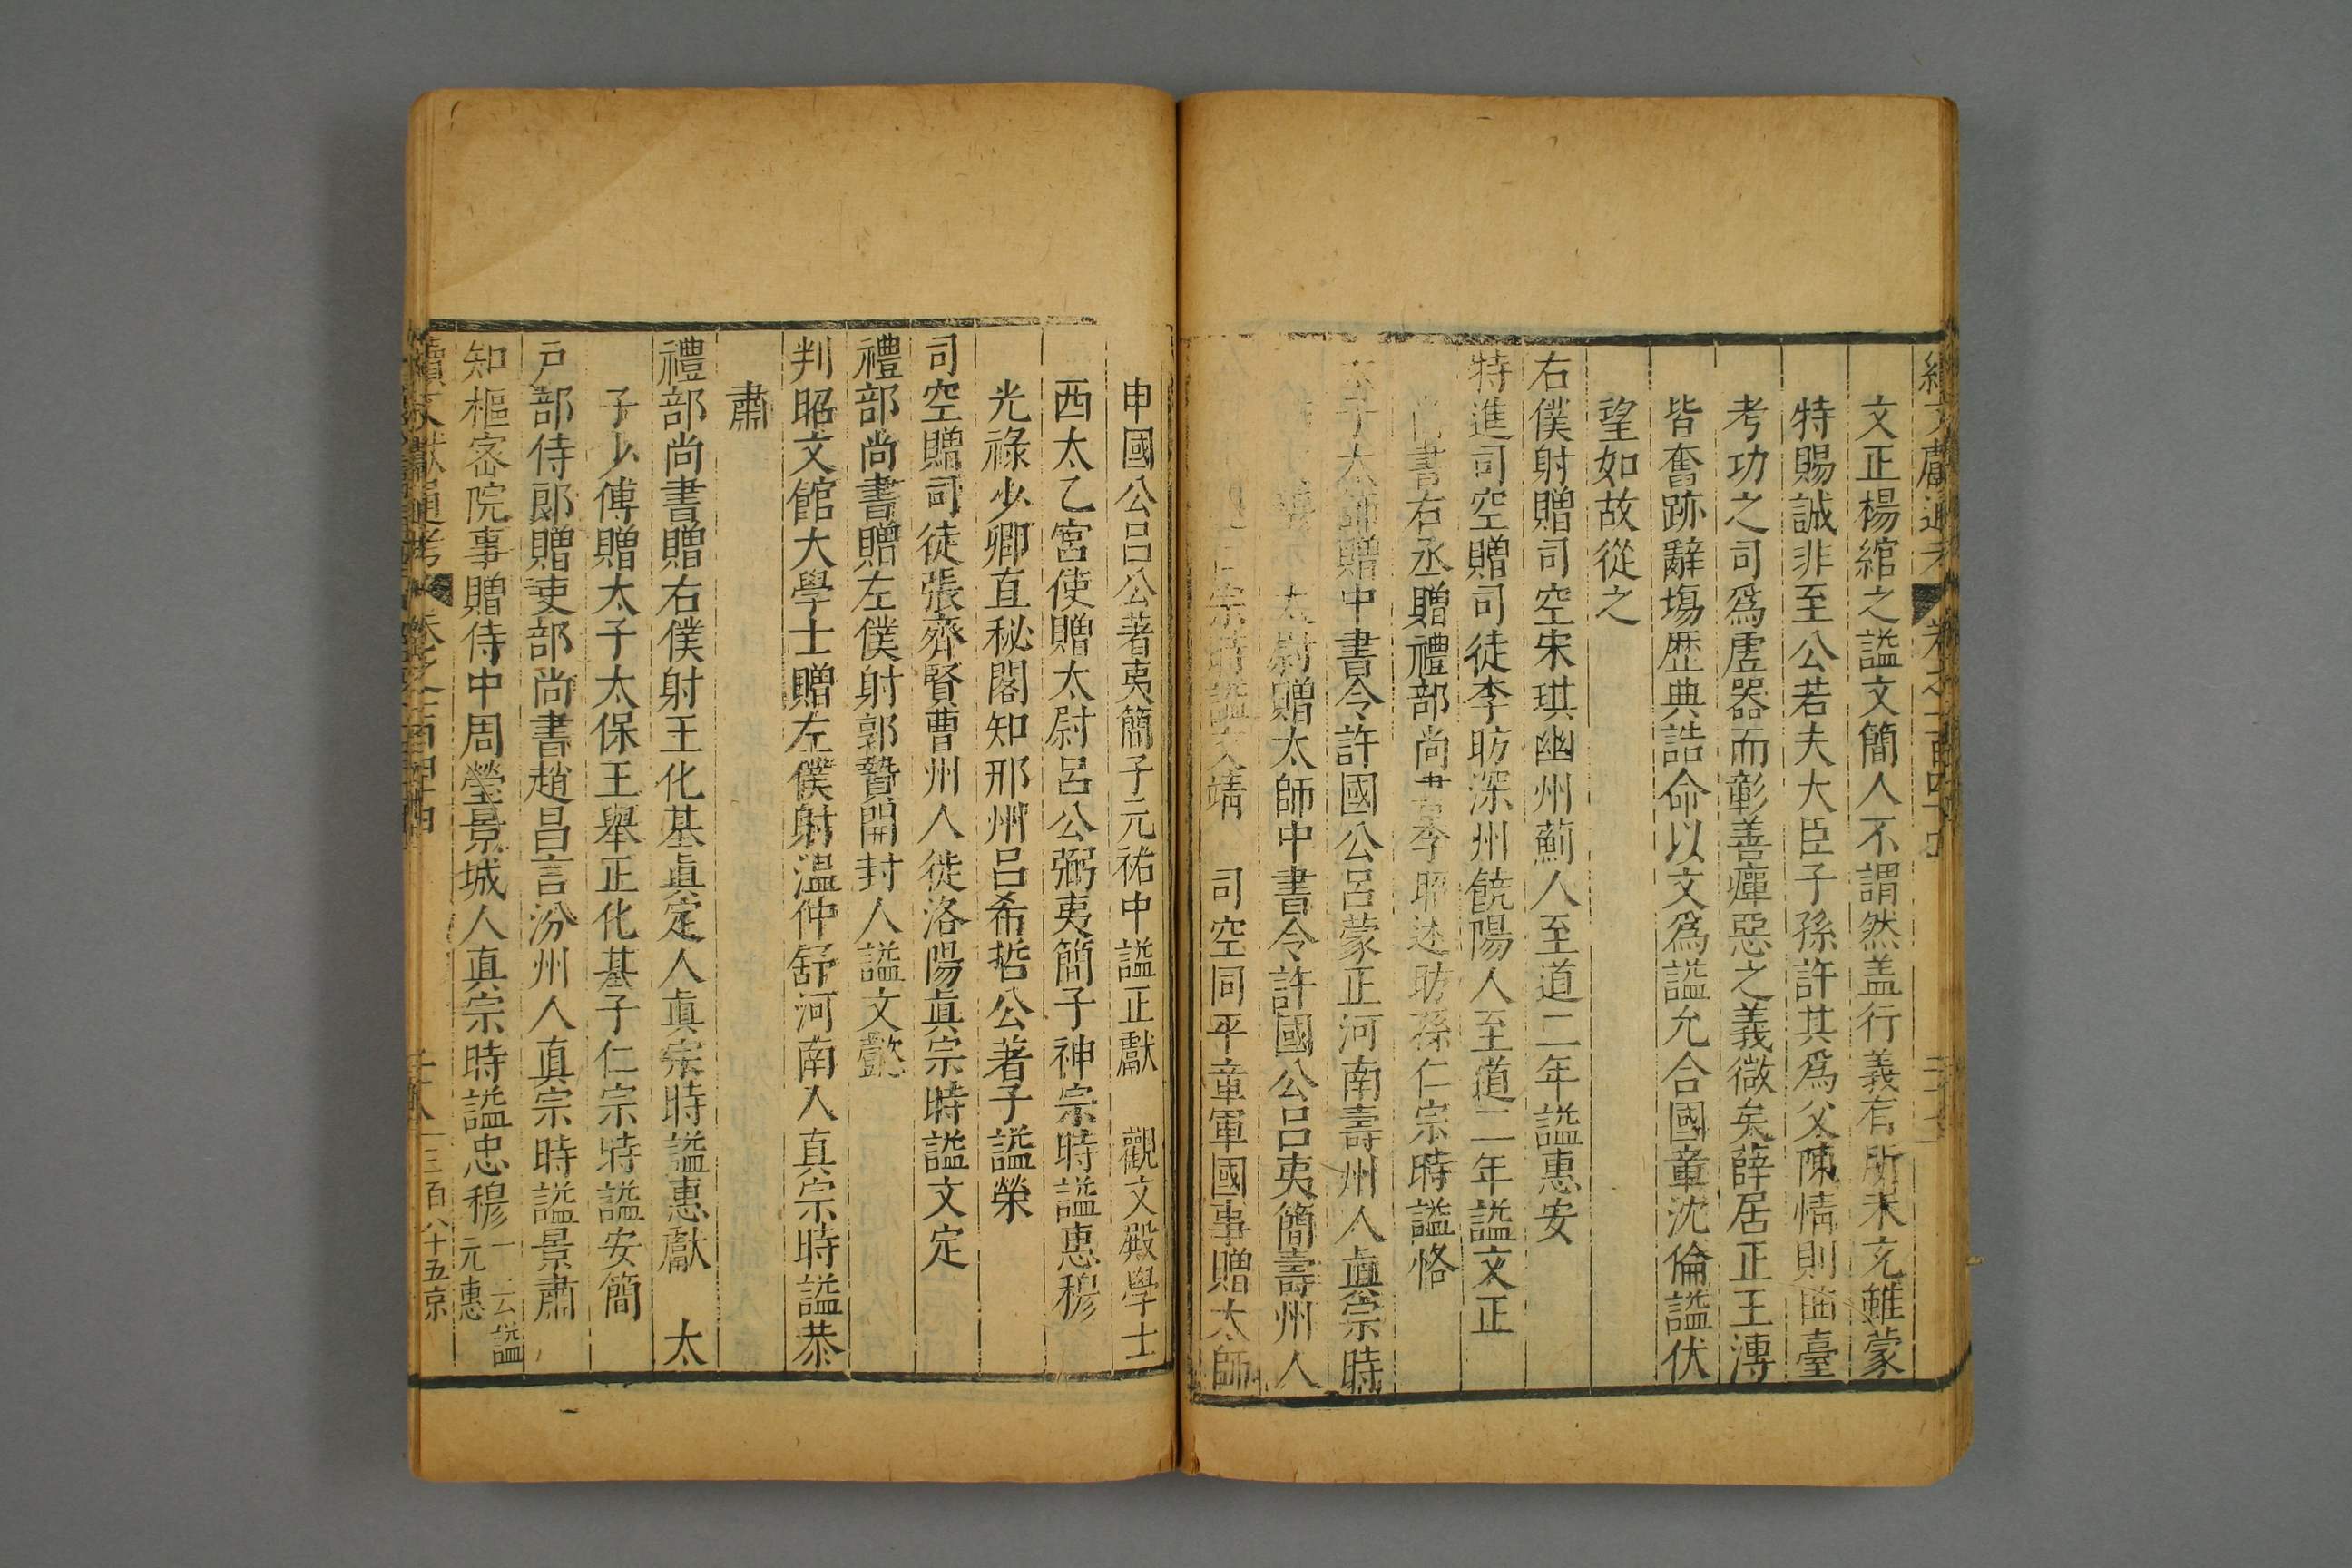 續文獻通考 卷之一百四十
文正楊綰之謚文簡人不謂然盖行義有所未充雖蒙
特賜誠非至公若夫大臣子孫許其爲父陳情則曲臺
考功之司爲虚器而彰善癉惡之義微矣薛居正王溥
皆奮跡辭塲歴典誥命以文爲謚允合國章沈倫謚伏
望如故從之
右僕射贈司空宋琪幽州薊人至道二年謚惠安
特進司空贈司徒李昉深州饒陽人至道二年謚文正
尚書右丞贈禮部尚書李昭述昉孫仁宗時謚恪
太子太師贈中書令許國公呂蒙正河南壽州人眞宗時
太尉贈太師中書令許國公呂夷簡壽州人
宗時謚文靖 司空同平章軍國事贈太師
申國公呂公著夷簡子元祐中謚正獻 觀文殿學士
西太乙宮使贈太尉呂公弼夷簡子神宗時謚惠穆
光祿少卿直秘閣知邢州呂希哲公著子謚榮
司空贈司徒張齊賢曹州人徙洛陽眞宗時謚文定
禮部尚書贈左僕射郭贄開封人謚文懿
判昭文館大學士贈左僕射溫仲舒河南人真宗時謚恭
肅
禮部尚書贈右僕射王化基眞定人眞宗時謚惠獻 太
子少傅贈太子太保王舉正化基子仁宗時謚安簡
戸部侍郎贈吏部尚書趙昌言汾州人真宗時謚景肅
知樞密院事贈侍中周瑩景城人真宗時謚忠穆一云謚元惠
續文獻通考 卷之一百四十 三百八十五京